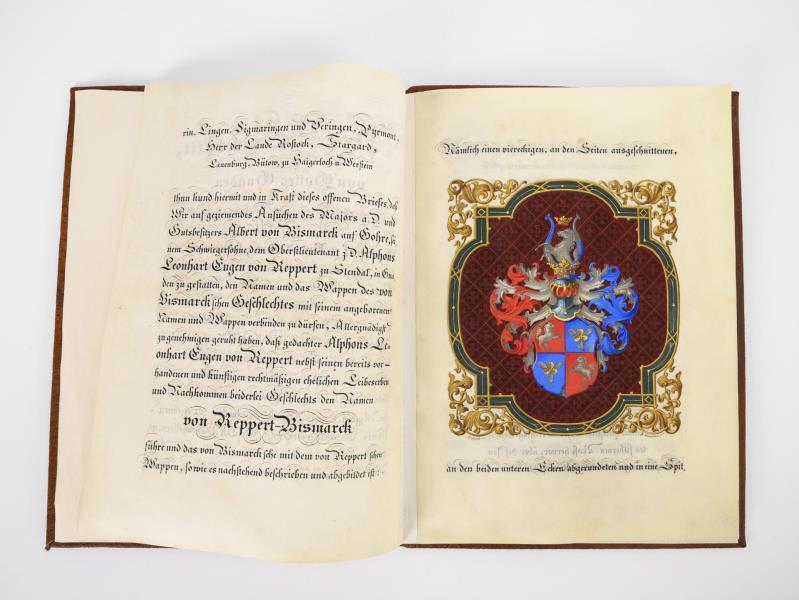 rin, Lingen, Sigmaringen und Veringen, Pyrmont,
Herr der Lande Rostock, Stargard,
Lauenburg, Bütow, zu Haigerloch u Werstein
thun kund hiermit und in Kraft dieses offenen Briefes, daß
Wir auf geziemendes Ansuchen des Majors a.D. und
Gutsbesitzers Albert von Bismarck auf Gohre, sei
nem Schwiegersohne, dem Oberstlieutenant z.D. Alphons
Leonhart Eugen von Reppert zu Stendal, in Gna
den zu gestatten, den Namen und das Wappen des von
Bismarck'schen Geschlechtes mit seinem angeborenen
Namen und Wappen verbinden zu dürfen, Allergnädigst
zu genehmigen geruht haben, daß gedachter Alphons Le-
onhart Eugen von Reppert nebst seinen bereits vor-
handenen und künftigen rechtmäßigen ehelichen Leibeserben
und Nachkommen beiderlei Geschlechts den Namen
von Reppert-Bismarck
führe und das von Bismarck'sche mit dem von Reppert'schen
Wappen, so wie es nachstehend beschrieben und abgebildet ist:-
Nämlich einen viereckigen, an den Seiten ausgeschnittenen,
an den beiden unteren Ecken abgerundeten und in eine Spit